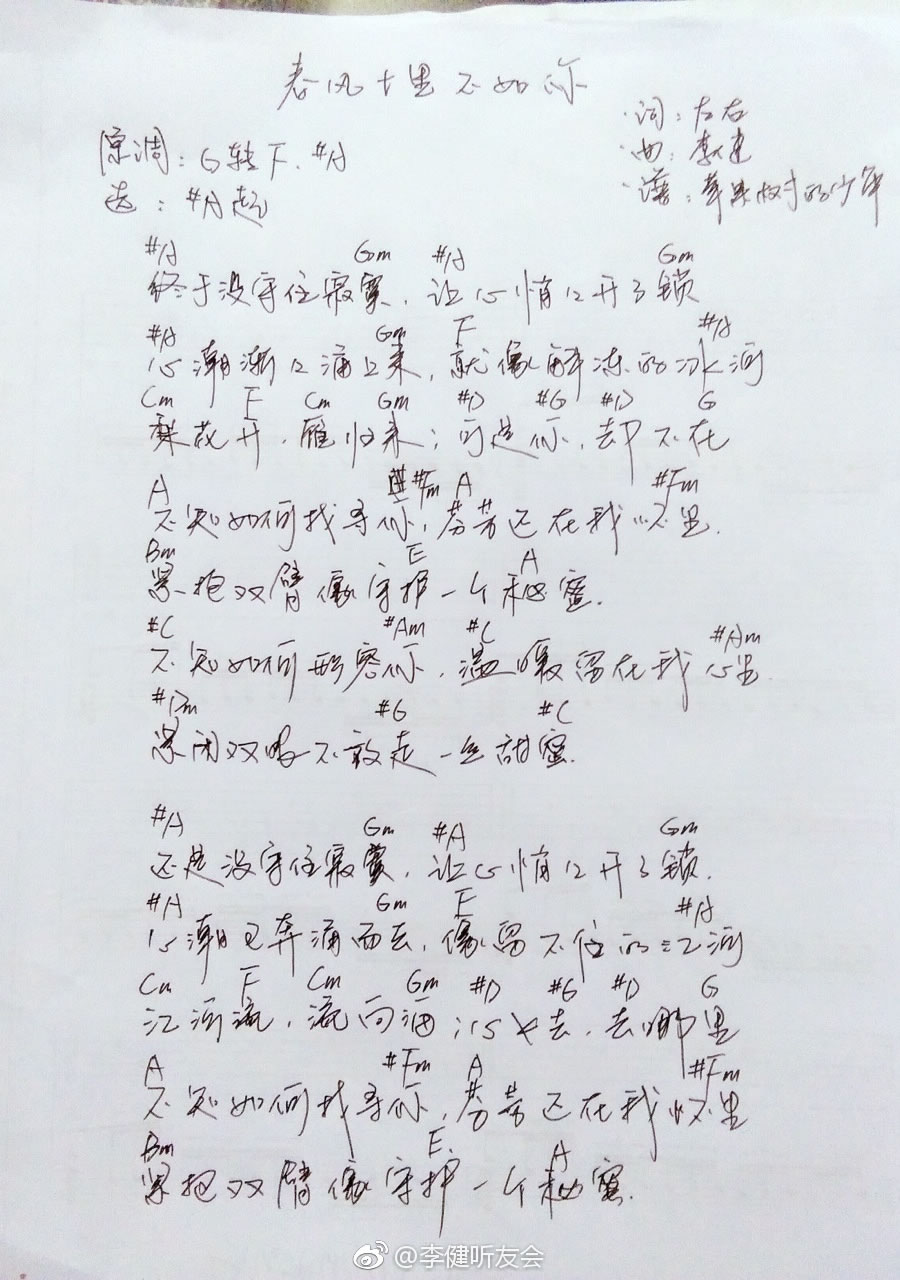 春风十里不如你
词：左右
原调：G转F.#A
曲：李健
选：#A起
谱：苹果树的少年
#A Gm #A Gm
终于没守住寂寞，让心悄々开了锁
#A Gm F #A
心潮渐々涌上来，就像解冻的冰河
Cm F Cm Gm #D #G #D G
梨花开，雁归来；可是你，却不在
A #Fm A #Fm
不知如何找寻你，芬芳还在我怀里.
Bm E A
紧抱双臂像守护一个秘蜜.
#C #Am #C #Am
不知如何形容你，温暖留在我心里
#Dm #G #C
紧闭双眼不敢走一丝甜蜜.
#A Gm #A Gm
还是没守住寂寞，让心悄々开了锁.
#A Gm F #A
心潮已奔涌而去，像留不住的江河
Cm F Cm Gm #D #G #D G
江河流，流向海；心火去，去哪里
A #Fm A #Fm
不知如何找寻你，芬芳还在我怀里
Bm E. A
紧抱双臂像守护一个秘蜜.
@李健听友会